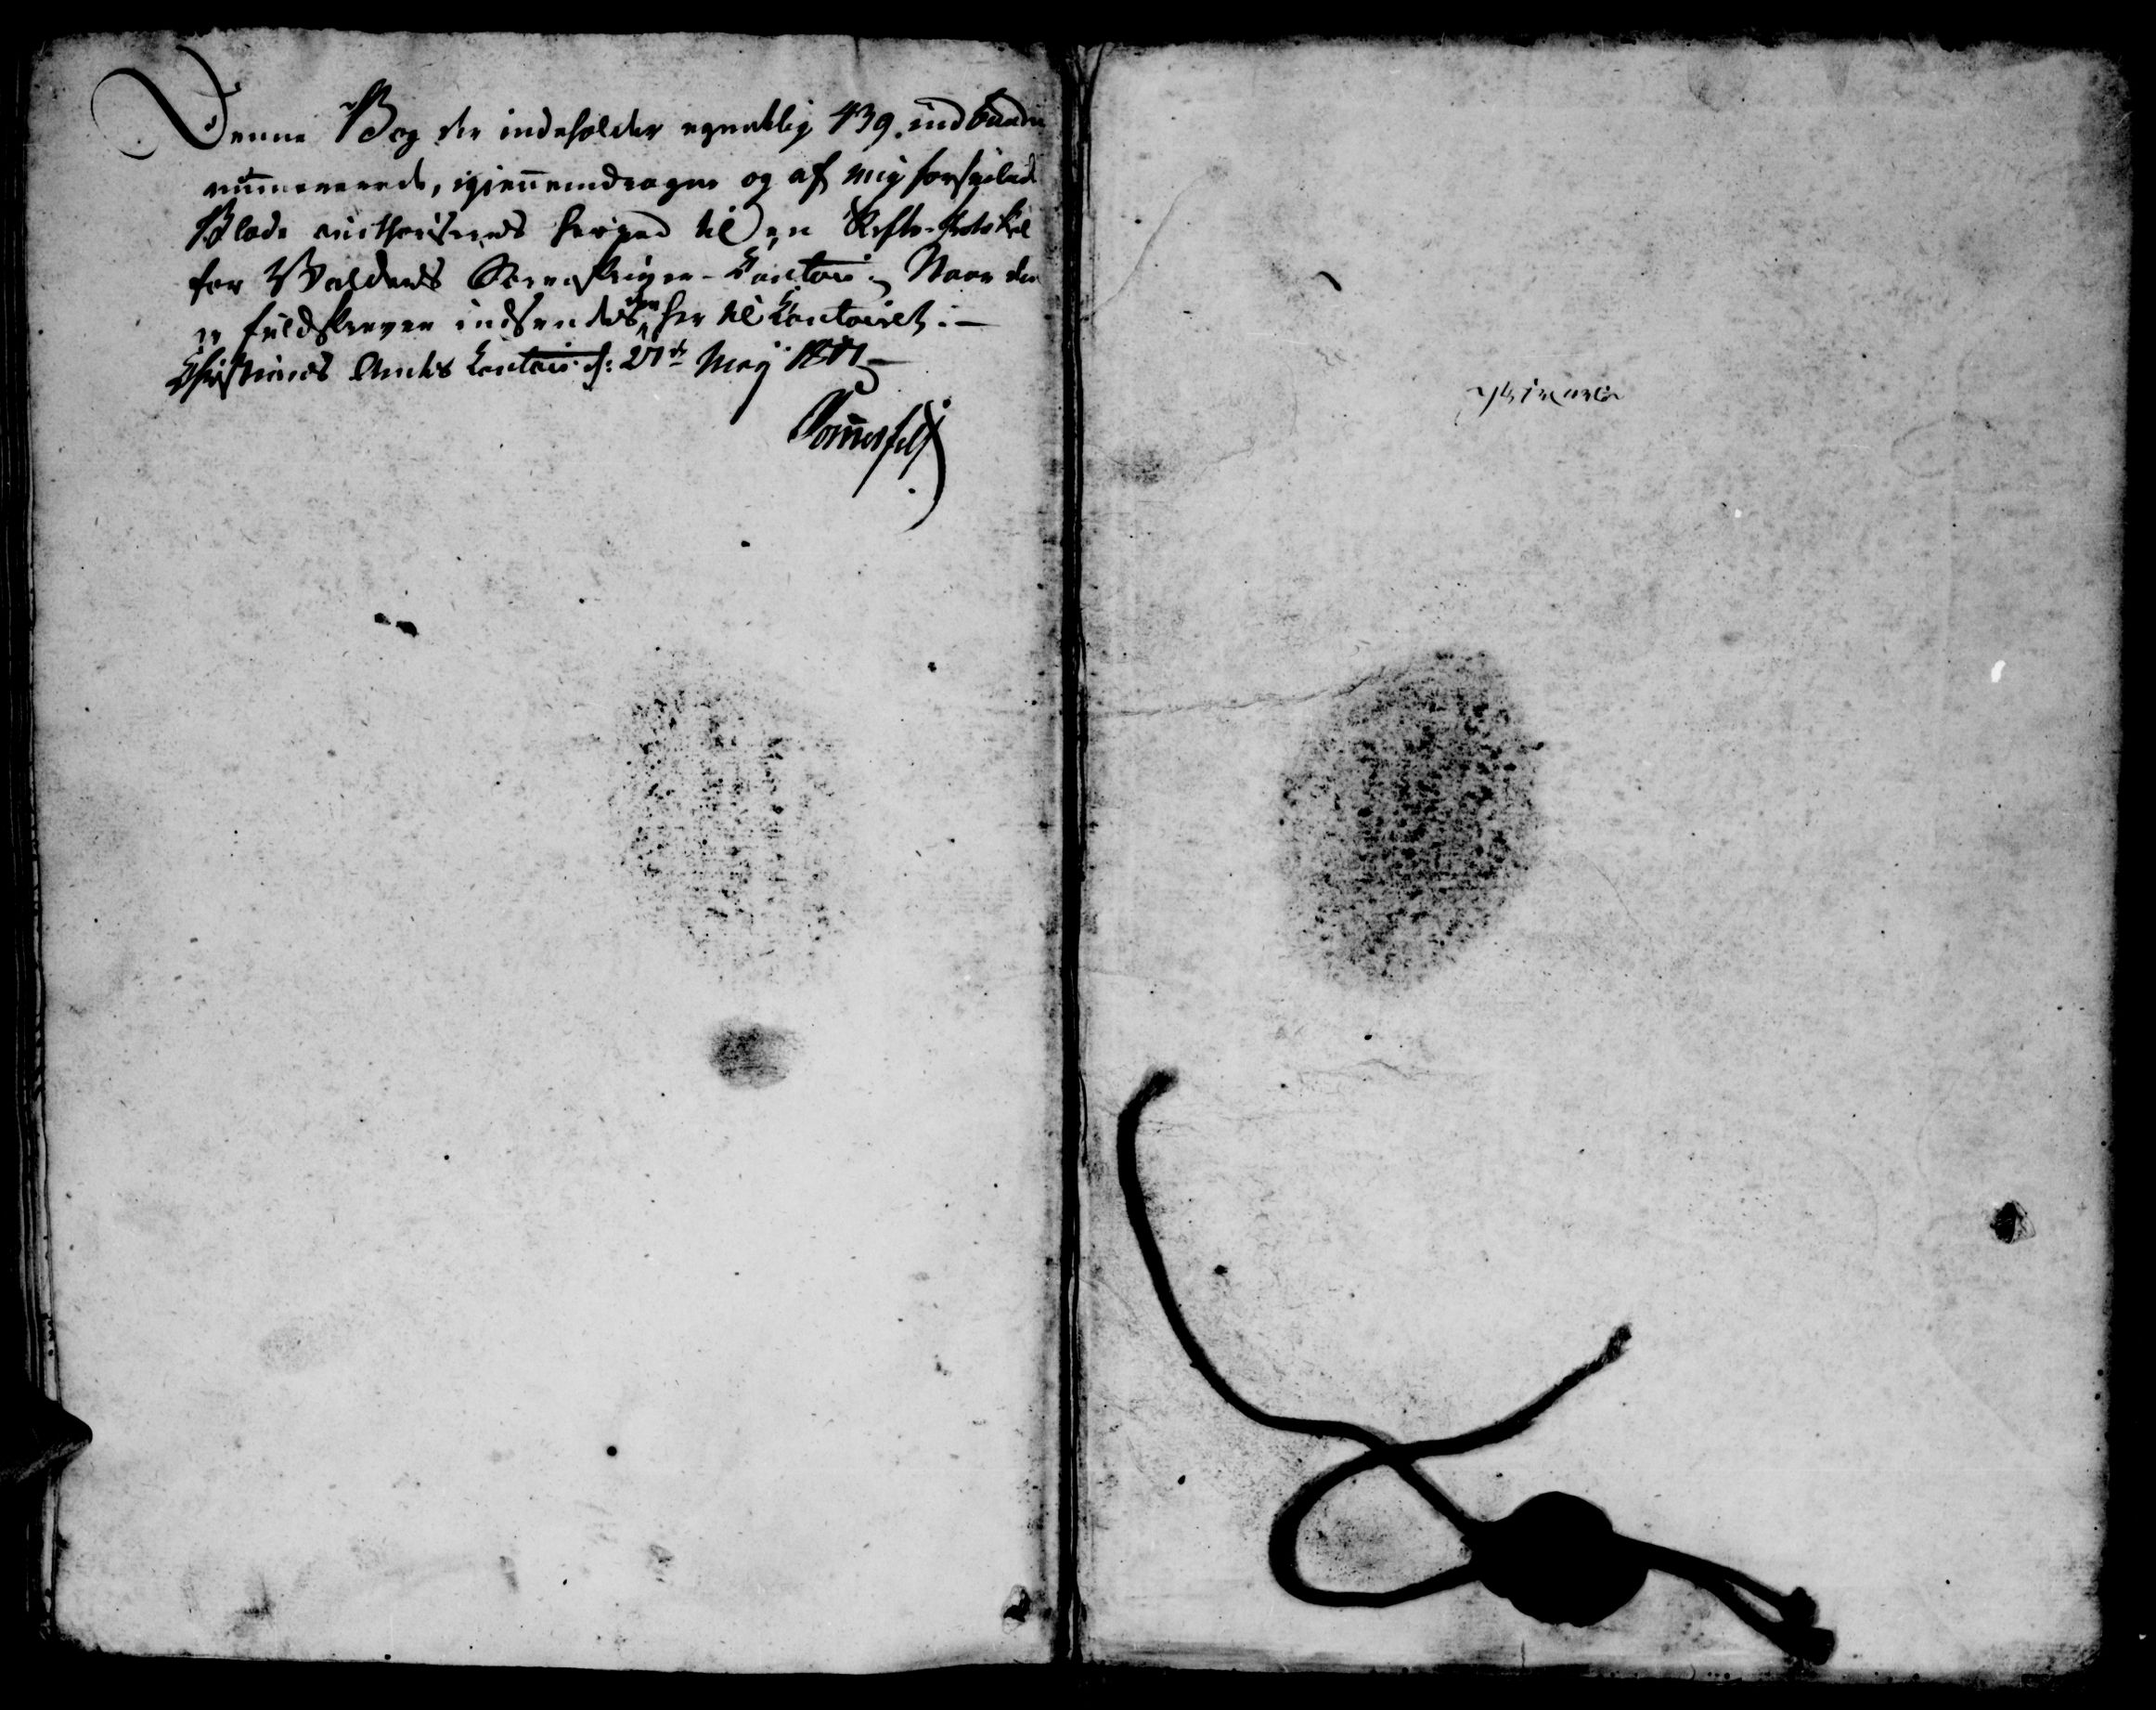 Denne Bog der indeholder egentlig 439. indbundne
num̅ererede, igien̅emdragne og af mig forseiglede
Blade authoriseres herved til en Skifte-Protokol
for Walders Sorenskriver-Contoir. Naar den
er fuldskreven indsendes den her til Contoiret. —
Christians Amts Contoir d: 27de May 1811
Som̅erfelt